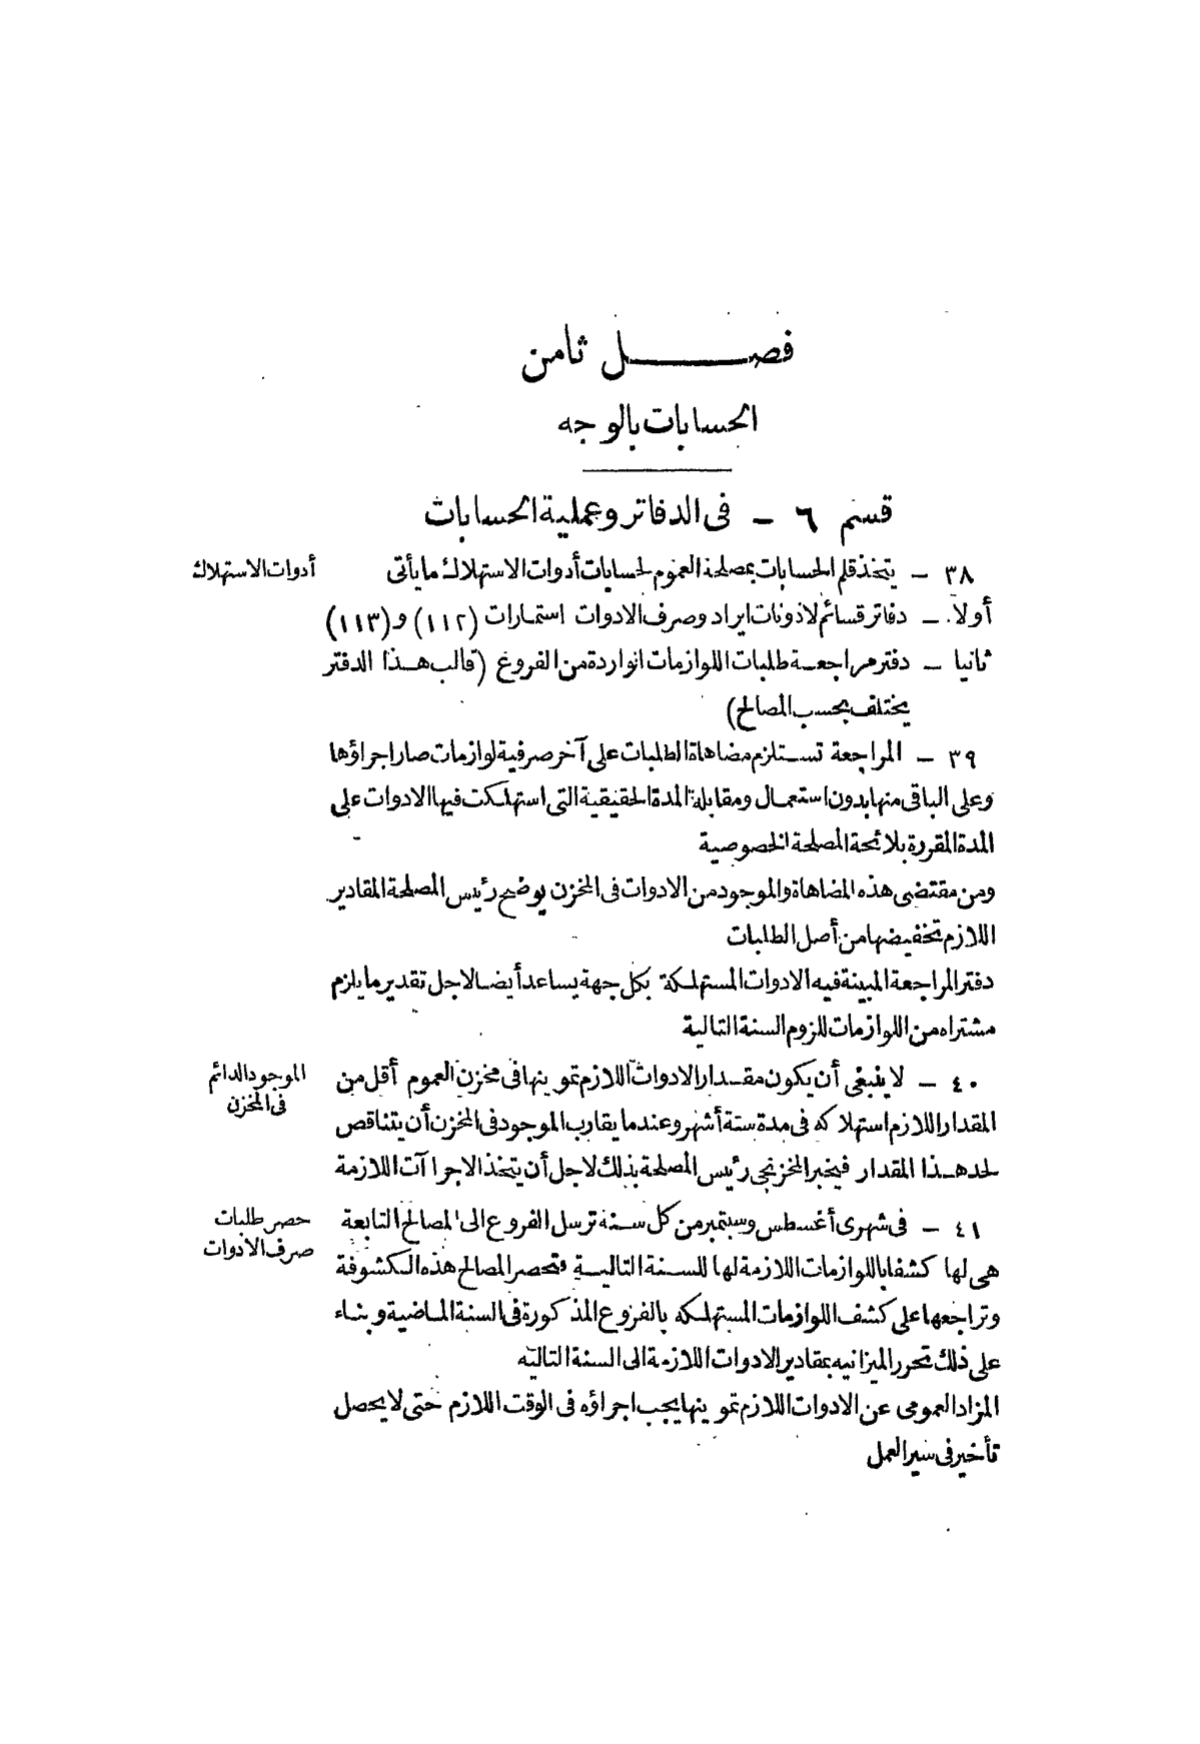 فصــــــل ثامن
الحسابات بالوجه
قسم ٦ – فى الدفاتر وعملية الحسابات
٣٨ – يتخذ قلم الحسابات بمصلحة العموم لحسابات أدوات الاستهلاك ما يأتى
أدوات الاستهلاك
أولا – دفاتر قسائم لاذونات ايراد وصرف الادوات استمارات (١١٢) و(١١٣)
ثانيا – دفتر مراجعــة طلبات اللوازمات الواردة من الفروع (قالب هــذا الدفتر
يختلف بحسب المصالح)
٣٩ – المراجعة تستلزم مضاهاة الطلبات على آخر صرفية لوازمات صار اجراؤها
وعلى الباقى منها بدون استعمال ومقابلة المدة الحقيقية التى استهلكت فيها الادوات على
المدة المقررة بلائحة المصلحة الخصوصية
ومن مقتضى هذه المضاهاة والموجود من الادوات فى المخزن يوضح رئيس المصلحة المقادير
اللازم تخفيضها من أصل الطلبات
دفتر المراجعة المبينة فيه الادوات المستهلكة بكل جهة يساعد أيضا لاجل تقدير ما يلزم
مشتراه من اللوازمات للزوم السنة التالية
٤٠ – لا ينبغى أن يكون مقــدار الادوات اللازم تموينها فى مخزن العموم أقل من
الموجود الدائم
فى المخزن
المقدار اللازم استهلاكه فى مدة ستة أشهر وعندما يقارب الموجود فى المخزن أن يتناقص
لحد هــذا المقدار فيخبر المخزنجى رئيس المصلحة بذلك لاجل أن يتخذ الاجراآت اللازمة
٤١ – فى شهرى أغسطس وسبتمبر من كل سـنة ترسل الفروع الى المصالح التابعة
حصر طلبات
صرف الادوات
هى لها كشفا باللوازمات اللازمة لها للسـنة التاليــة وتحصر المصالح هذه الكشوفة
وتراجعها على كشف اللوازمات المستهلكه بالفروع المذكورة فى السنة المـاضية وبنـاء
على ذلك تحرر الميزانيه بمقادير الادوات اللازمة الى السنة التاليه
المزاد العمومى عن الادوات اللازم تموينها يجب اجراؤه فى الوقت اللازم حتى لا يحصل
تأخير فى سير العمل